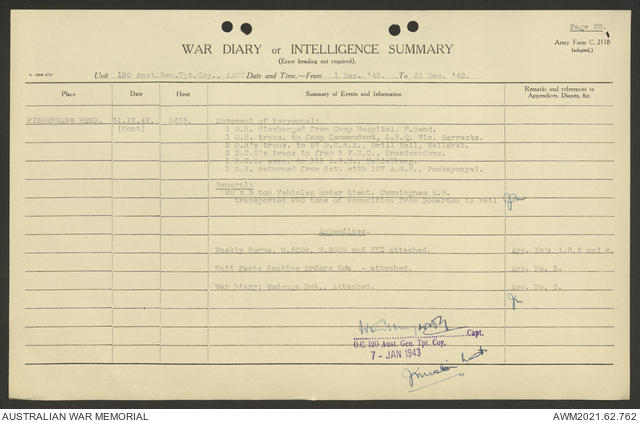 Page 22.
Army Form C. 2118
(adapted.)
WAR DIARY or INTELLIGENCE SUMMARY
(Erase heading not required).
Unit 120 Aust.Gen.Tpt.Coy., AASC Date and Time.—From 1 Dec. '42. To 31 Dec. '42.
Place Date Hour Summary of Events and Information Remarks and references to Appendices, Diaries, &c.
FISHERMANS BEND. 31.12.42. 0615. Movement of Personnel:
(Cont) 1 O.R. discharged from Camp Hospital, F.Bend.
1 O.R. trans. to Camp Commandant, L.H.Q. Vic. Barracks.
2 O.R's trans. to 67 D.O.R.E., Drill Hall, Ballarat.
3 N.C.O's trans in from 5 V.D.C., Broadmeadows.
1 N.C.O. evac. to 115 A.G.H., Heidelberg.
1 O.R. returned from det. with 107 A.G.H., Puckapunyal.
General:
90 x 3 ton Vehicles under Lieut. Cunningham
transported 290 tons of ammunition from Somerton to rail
Appendices.
Weekly Forms, W.3008, W.3009 and XYZ attached. App. No's 1,2,3 and 4.
Unit Part: Routine Orders - attached. App. No. 5.
War Diary: Wodonga Det., Attached. App. No. 6.
Capt.
O.C. 120 Aust. Gen. Tpt. Coy.
7 - JAN 1943
AUSTRALIAN WAR MEMORIAL AWM2021.62.762